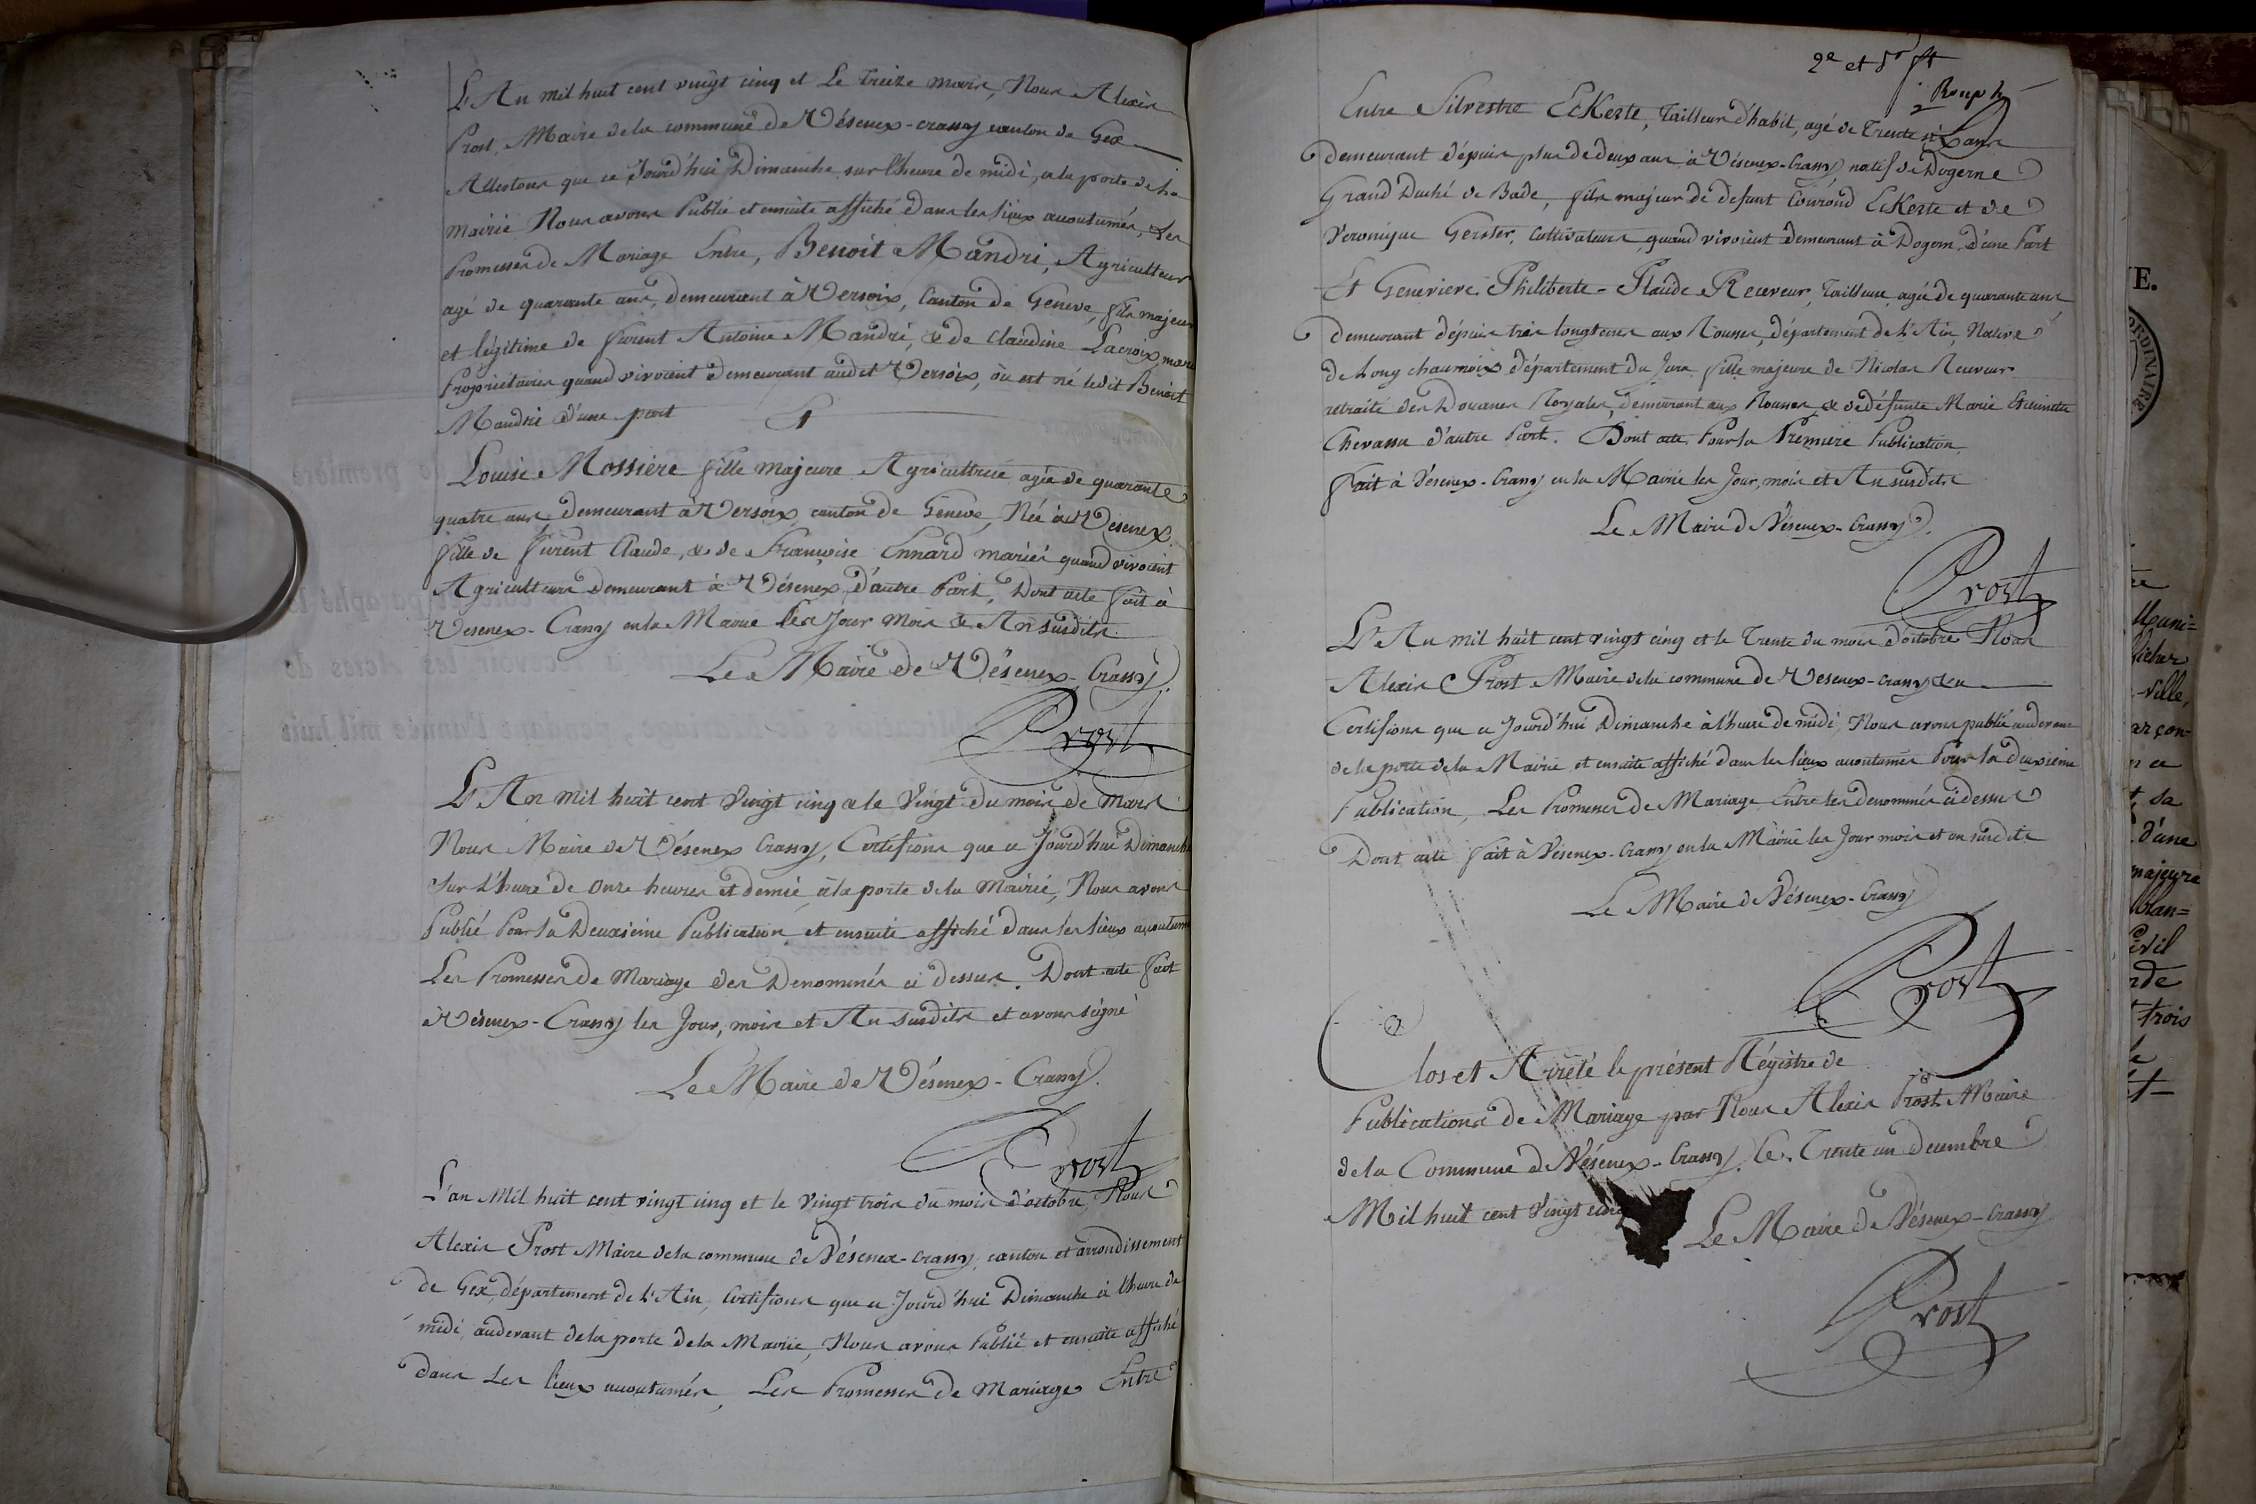 L'An mil huit cent vingt cinq et Le treize mars, Nous Alexis
Prost, Maire de la commune de Vésenex-crassy canton de Gex
Attestons que ce Jourd'hui Dimanche sur l'heure de midi, a la porte de la
mairie Nous avons Publié et ensuite affiché dans les lieux acoutumés, Les
Promesses de Mariage Entre, Benoit Mandri, Agriculteur
agé de quarante ans, demeurant à Versoix, Canton de Geneve, fils majeur
et légitime de furent Antoine Mandri, & de Claudine Lacroix, mariés
Propriétaires quand vivoient demeurant audit Versoix, où est né ledit Benoit
Mandri d'une part Et
Louise Mossiere fille majeure Agricultrice agée de quarante
quatre ans demeurant à Versoix, canton de Géneve, Née à Vesenex
fille de furent Claude, & de Françoise Ennard mariés quand vivoient
Agriculteurs demeurant à Vésenex d'autre Part, Dont acte fait à
Vesenex-Crassy en la Mairie les Jour mois & An susdits.
Le Maire de Vésenex-Crassy
Prost
L'An mil huit cent vingt cinq & le vingt du mois de Mars
Nous Maire de Vésenex Crassy, Certifions que ce Jourd'hui Dimanche
sur L'heure de onze heures et demie, à la porte de la Mairie, Nous avons
Publié Pour la Deuxieme Publication et ensuite affiché dans les lieux acoutumés
Les Promesses de Mariage des Denommés ci dessus. Dont acte fait
à Vésenex-Crassy les Jour, mois et An susdits et avons signé
Le Maire de Vésenex-Crassy.
Prost
L'an Mil huit cent vingt cinq et le vingt trois du mois d'octobre, Nous
Alexis Prost Maire de la commune de Vésenex-crassy, canton et arrondissement
de Gex, département de L'Ain, Certifions que ce Jourd'hui Dimanche à l'heure de
midi, audevant de la porte de la Mairie, Nous avons Publié et ensuite affiché
dans Les lieux acoutumés, Les Promesses de Mariage Entre
2e et
Entre Silvestre Eckerte, Tailleur d'habit, agé de Trente six ans
demeurant dépuis plus de deux ans à Vésenex-Crassy, natif de Dogerne
Grand Duché de Bade, fils majeur de defunt Conrond Eckerte et de
Veronique Gerster, Cultivateurs, quand vivoient demeurant à Dogern, d'une Part
Et Genevieve Philiberte-Plaude Receveur, Tailleuse agée de quarante ans
demeurant dépuis très longtems aux Rousses, département de L'Ain, Native
de Long chaumois département du Jura fille majeure de Nicolas Receveur
retraité des Douanes Royales, demeurant aux Rousses, & de défunte Marie
Chevassu d'autre Part. Dont acte, Pour la Premiere Publication,
fait à Vésenex-Crassy en la Mairie les Jour, mois et An susdits
Le Maire de Vésenex-Crassy.
Prost
L'An mil huit cent vingt cinq et le Trente du mois d'octobre Nous
Alexis Prost Maire de la commune de Vesenex-crassy
Certifions que ce Jourd'hui Dimanche à l'heure de midi, Nous avons publié audevant
de la porte de la Mairie et ensuite affiché dans les lieux acoutumés Pour la deuxieme
Publication, Les Promesses de Mariage Entre les denommés ci dessus
Dont acte fait à Vésenex-Crassy en la Mairie les Jour mois et an susdits
Le Maire de Vésenex-Crassy
Prost
Clos et Arrêté le présent Régistre de
Publications de Mariage par Nous Alexis Prost Maire
de la Commune de Vésenex-Crassy, le Trente un decembre
Mil huit cent vingt cinq
Le Maire de Vésenex-Crassy
Prost